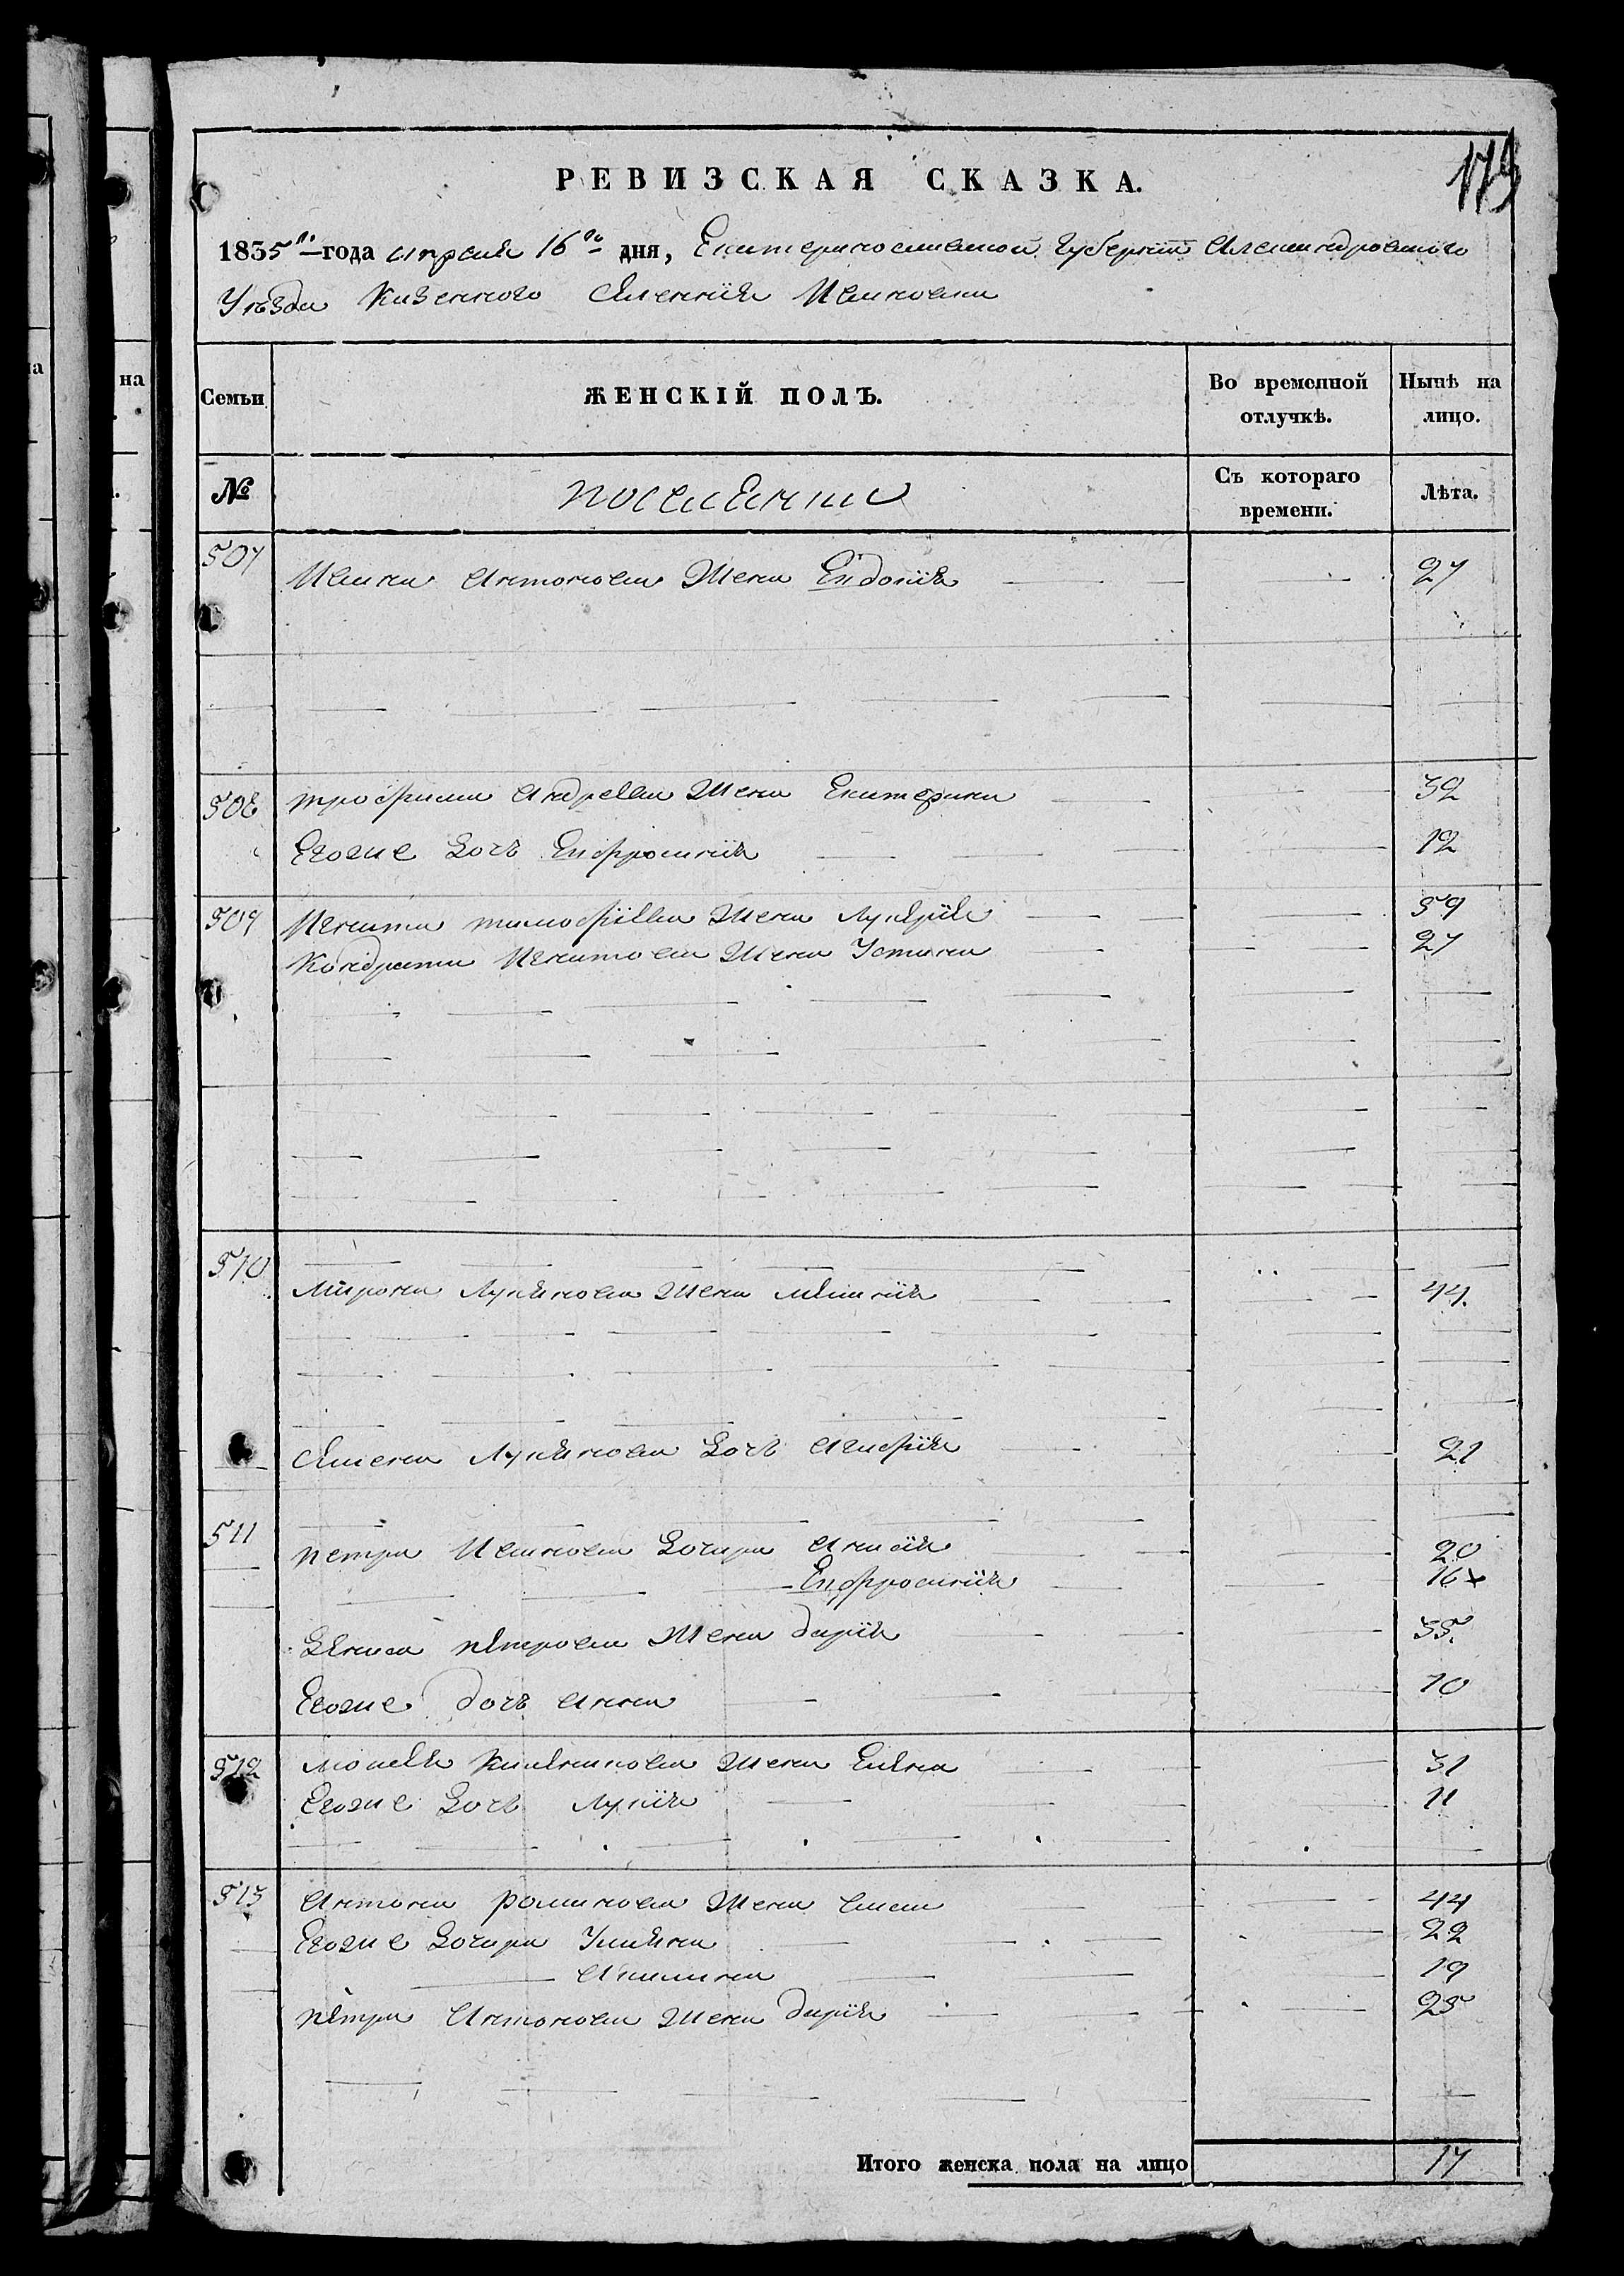 179
РЕВИЗСКАЯ СКАЗКА.
1835го года апреля 16го дня, Екатеринославской губернiи Александровского
Уѣзда Казенного Селенiя Ивановки
на
Семьи
ЖЕНСКIЙ ПОЛЪ.
Во временной отлучкѣ.
Нынѣ на лицо.
№
Съ котораго времени.
Лѣта.
507 Ивана Антонова Жена Евдокiя 27
508 трофима Андреева Жена Екатерина 32
Егоже Дочь Ефросинiя 12
509 Никиты тимофiева Жена Лукерiя 59
Кондрата Никитова Жена Устина 27
510 Мирона Лукянова Жена 44.
Семена Лукянова Дочь Агафiя 21
511 петра Иванова Дочери 20
Ефросинiя 16 x
Дениса петрова Жена дарiя 35.
Егоже дочь Анна 10
512 Жена Елена 31
Егоже Дочь 11
513 Антона романова Жена 44
Егоже Дочери Улияна 22
Акилина 19
петра Антонова Жена дарiя 25
Итого женска пола на лицо 17